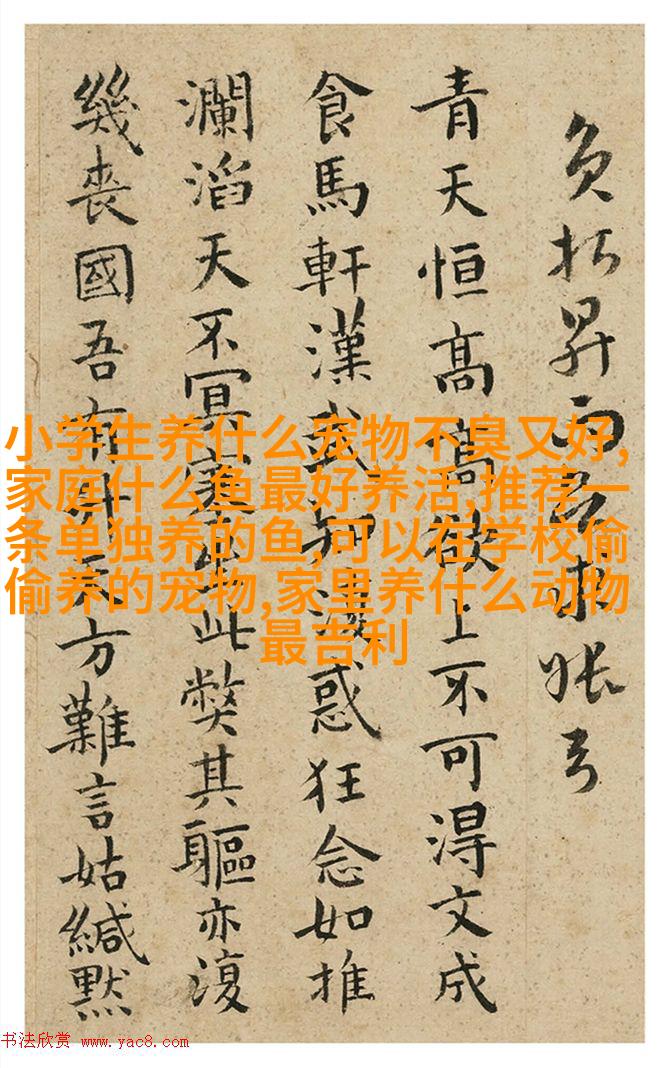 小学生养什么宠物不臭又好,
家庭什么鱼最好养活,推荐一
条单独养的鱼,可以在学校偷
偷养的宠物,家里养什么动物
最吉利
昇而求
青天恒高高欲上不可得文成
食馬軒漢武惑狂念如推
瀾滔天不冥此弊其軀亦復
幾喪國吾有方難言姑緘默
书法欣赏 www.yac8.com